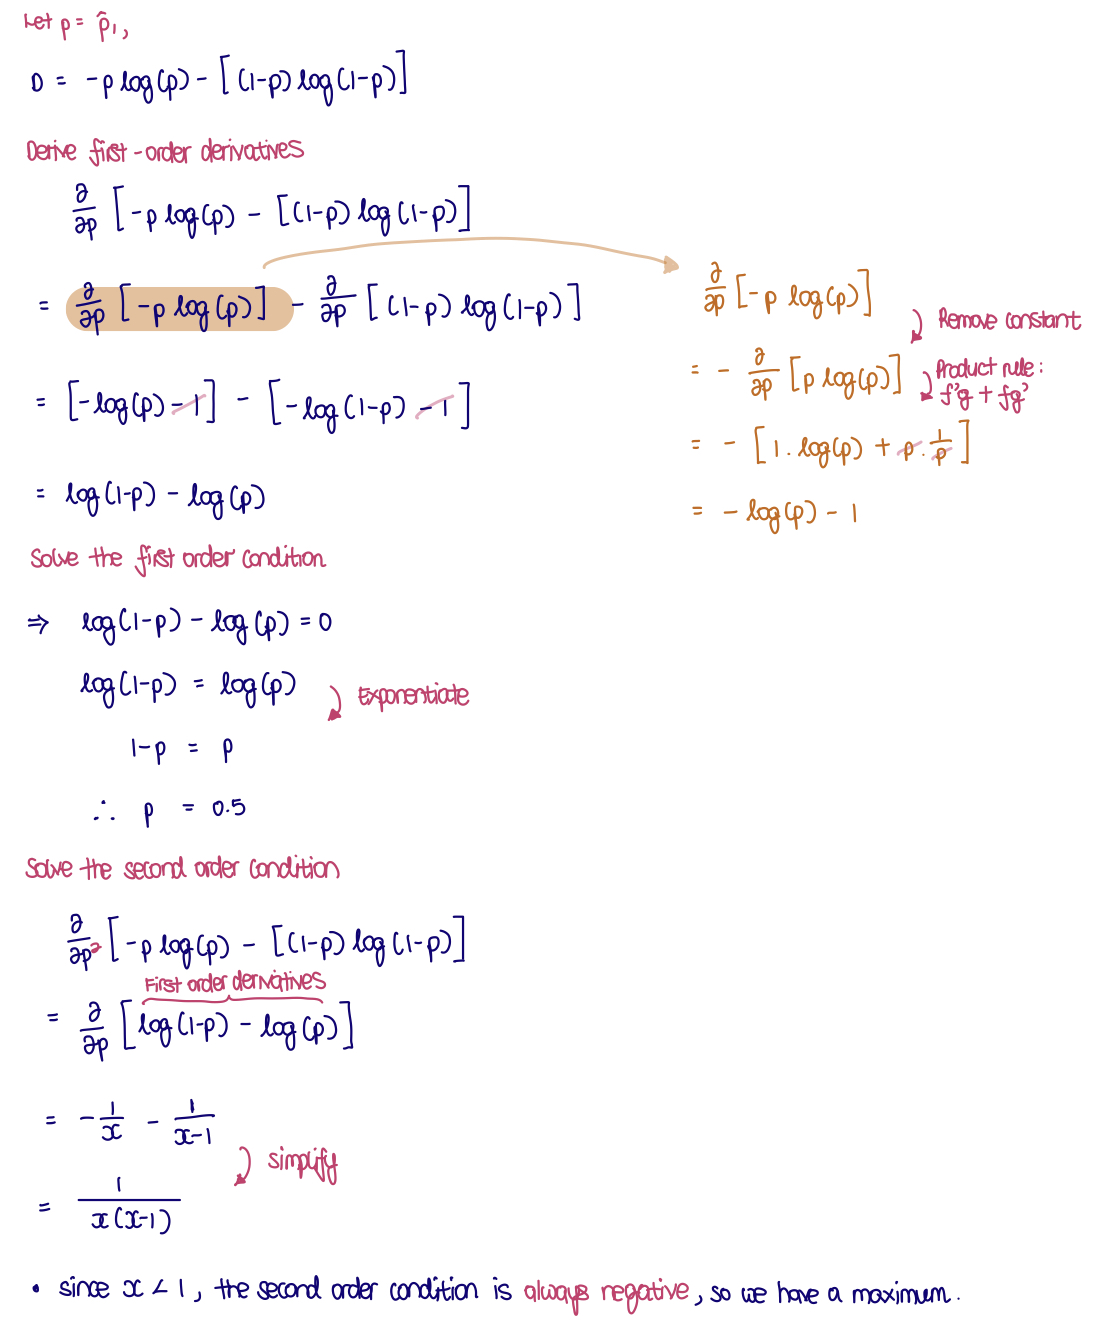 Let p = p̂₁,
D = -p log(p) - [(1-p) log(1-p)]
Derive first-order derivatives
∂/∂p [-p log(p) - [(1-p) log(1-p)]
= ∂/∂p [-p log(p)] - ∂/∂p [(1-p) log(1-p)]
= [-log(p) - 1] - [-log(1-p) - 1]
= log(1-p) - log(p)
∂/∂p [-p log(p)]
Remove constant
= - ∂/∂p [p log(p)]
Product rule:
f'g + fg'
= - [1 . log(p) + p . 1/p]
= - log(p) - 1
Solve the first order condition
⇒ log(1-p) - log(p) = 0
log(1-p) = log(p)
Exponentiate
1-p = p
∴ p = 0.5
Solve the second order condition
∂/∂p² [-p log(p) - [(1-p) log(1-p)]
First order derivatives
= ∂/∂p [log(1-p) - log(p)]
= - 1/x - 1/x-1
simplify
= 1/x(x-1)
• since x < 1, the second order condition is always negative, so we have a maximum.